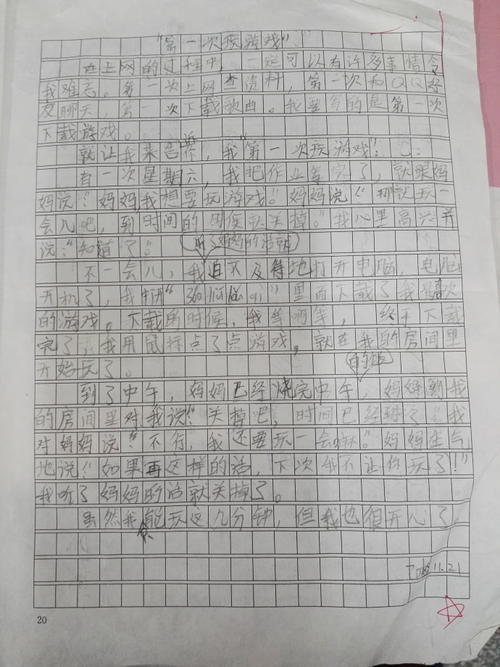 "第一次玩游戏"
在上网的过程中,一定可以有许多事情令
我难忘。第一次上网查资料,第一次和QQ好
友聊天,第一次下载歌曲。我要写的是第一次
下载游戏。
就让我来告诉,我"第一次玩游戏!
有一次星期六,我把作业写完了,就跟妈
妈说:"妈妈我想要玩游戏。"妈妈说:"那就玩一
会儿吧,到时间的时候就关掉。"我心里高兴并
说:"知道了"。
听了妈妈的话就
不一会儿,我迫不及待地打开电脑,电脑
开机了,我打开"360"里面下载了我喜欢
的游戏。下载的时候,我等啊等,终于下载
完了,我用鼠标点了点游戏,就在我的房间里
开始玩了。
的饭
到了中午,妈妈已经烧完中午,妈妈到我
的房间里对我说:"关掉吧,时间已经到了。"我
对妈妈说:"不行,我还要玩一会嘛。"妈妈生气
地说:"如果再这样的话,下次我不让你玩了!"
我听了妈妈的话就关掉了。
虽然我只能玩这几分钟,但我也很开心了。
11.21
20